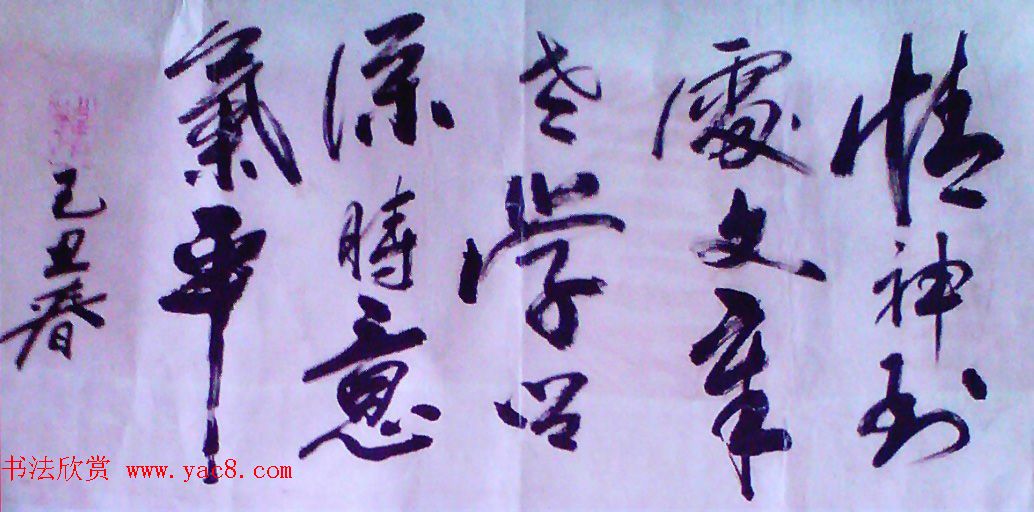 精神到
處文章
老學問
深時意
氣平
己丑春
书法欣赏 www.yac8.com